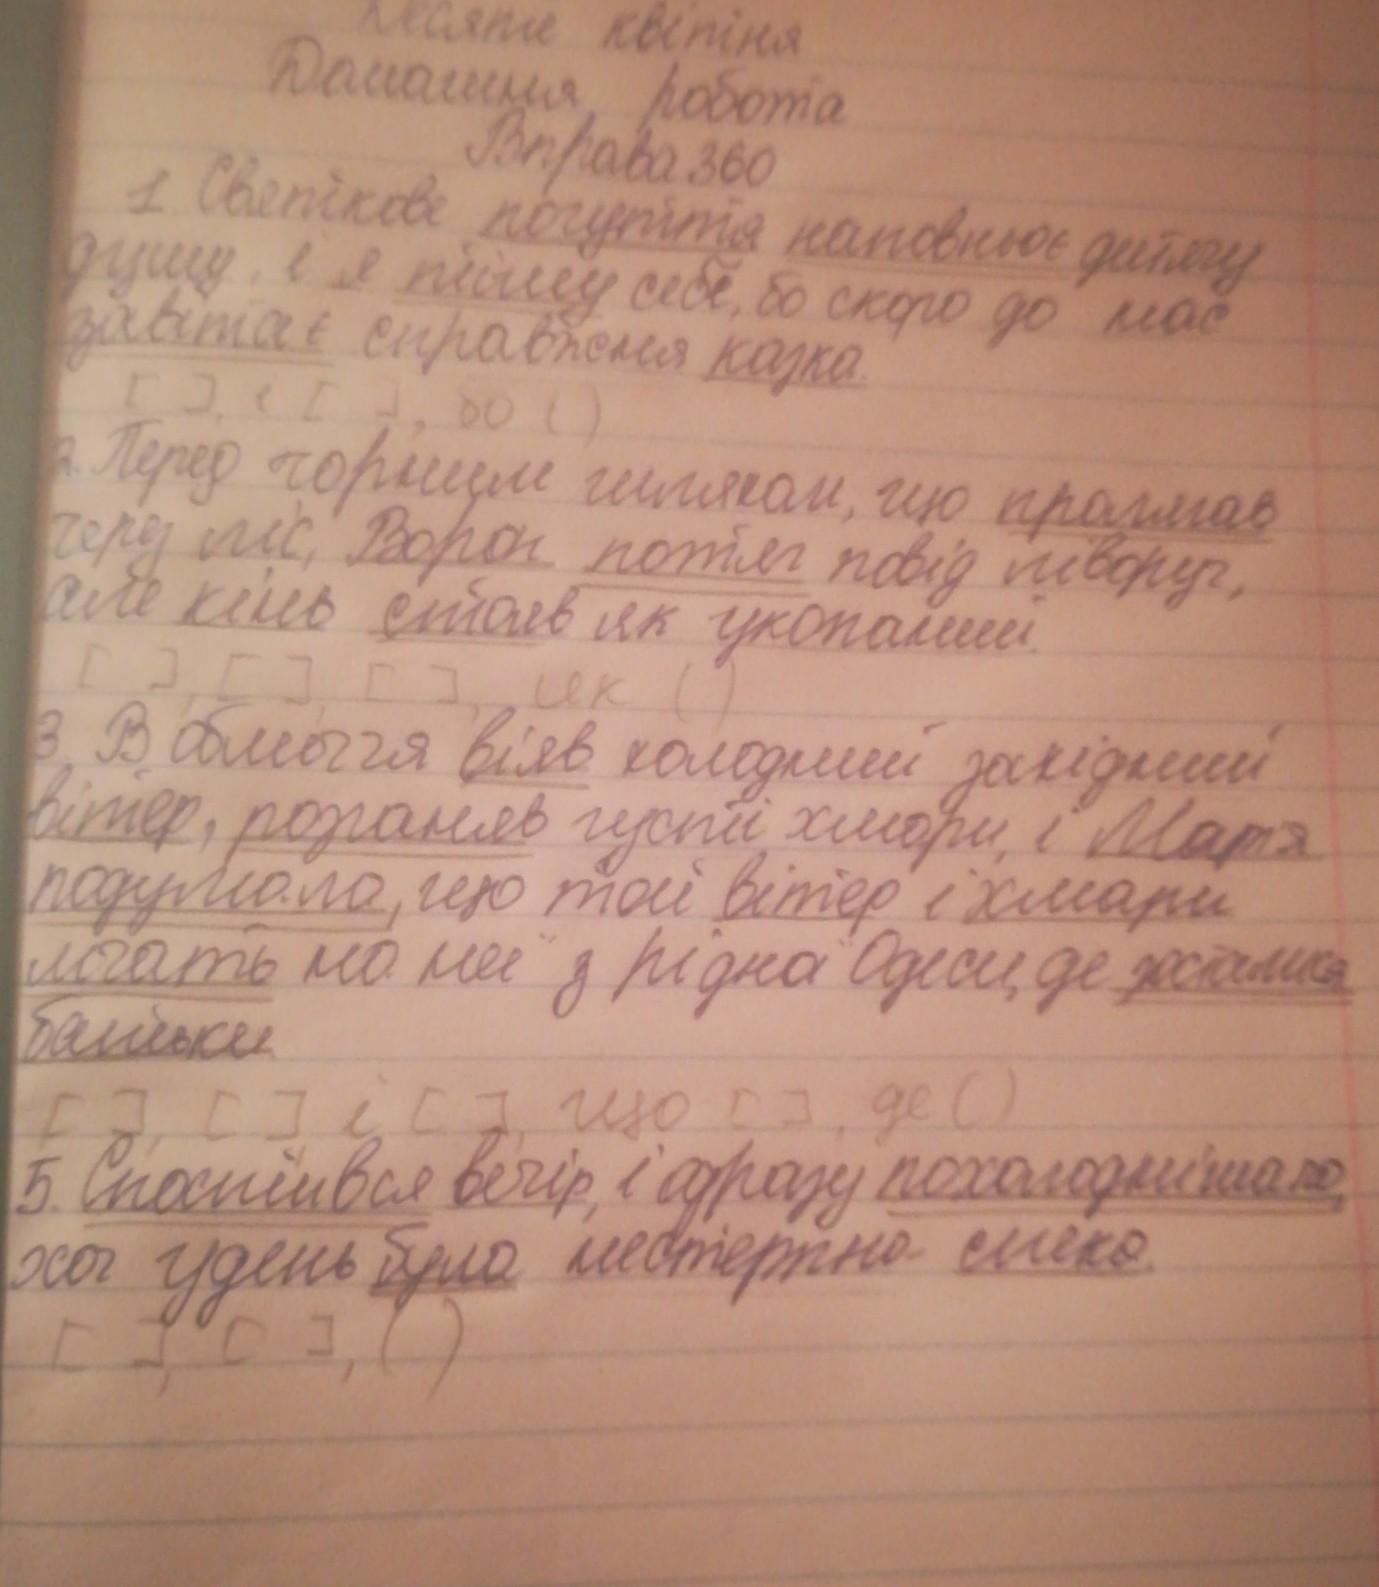 Десяте квітня
Домашня робота
Вправа 360
1 Святкове почуття наповнює дитячу
душу, і я тішу себе, бо скоро до нас
завітає справжня казка.
[ ], і [ ], бо ( )
2. Перед чорним шляхом, що пролягав
через ліс, Ворон потяг повід ліворуч,
але кінь стояв як укопаний.
[ ], [ ], [ ], як ( )
3. В обличчя віяв холодний західний
вітер, розганяв густі хмари, і Марта
подумала, що той вітер і хмари
летять на неї з рідна Одеси, де зостались
батьки
[ ], [ ] і [ ], що [ ], де ( )
5. Спостився вечір, і одразу похолоднішало,
хоч удень була нестерпна спека.
[ ], [ ], ( )